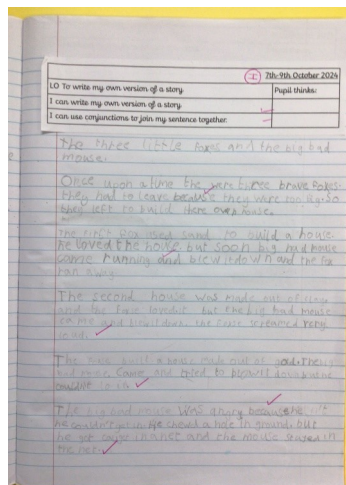 I 7th-9th October 2024
LO To write my own version of a story. Pupil thinks:
I can write my own version of a story
I can use conjunctions to join my sentence together.
The three little foxes and the big bad
mouse.
Once upon a time the were three brave foxes.
they had to leave because they were too big. so
they left to build there own house.
the first fox used sand to build a house.
he loved the house. but soon big bad mouse
came running and blew it down and the fox
ran away.
The second house was made out of
and the foxe loved it but the big bad mouse
came and blew it down. the foxe screamed very
The built a house made out of gold. The
bad came and tried to blow it down but he
couldnt
The big bad mouse was angry because he
he couldn't get in. He chewed a hole in ground. but
he got in a net and the mouse in
the net.